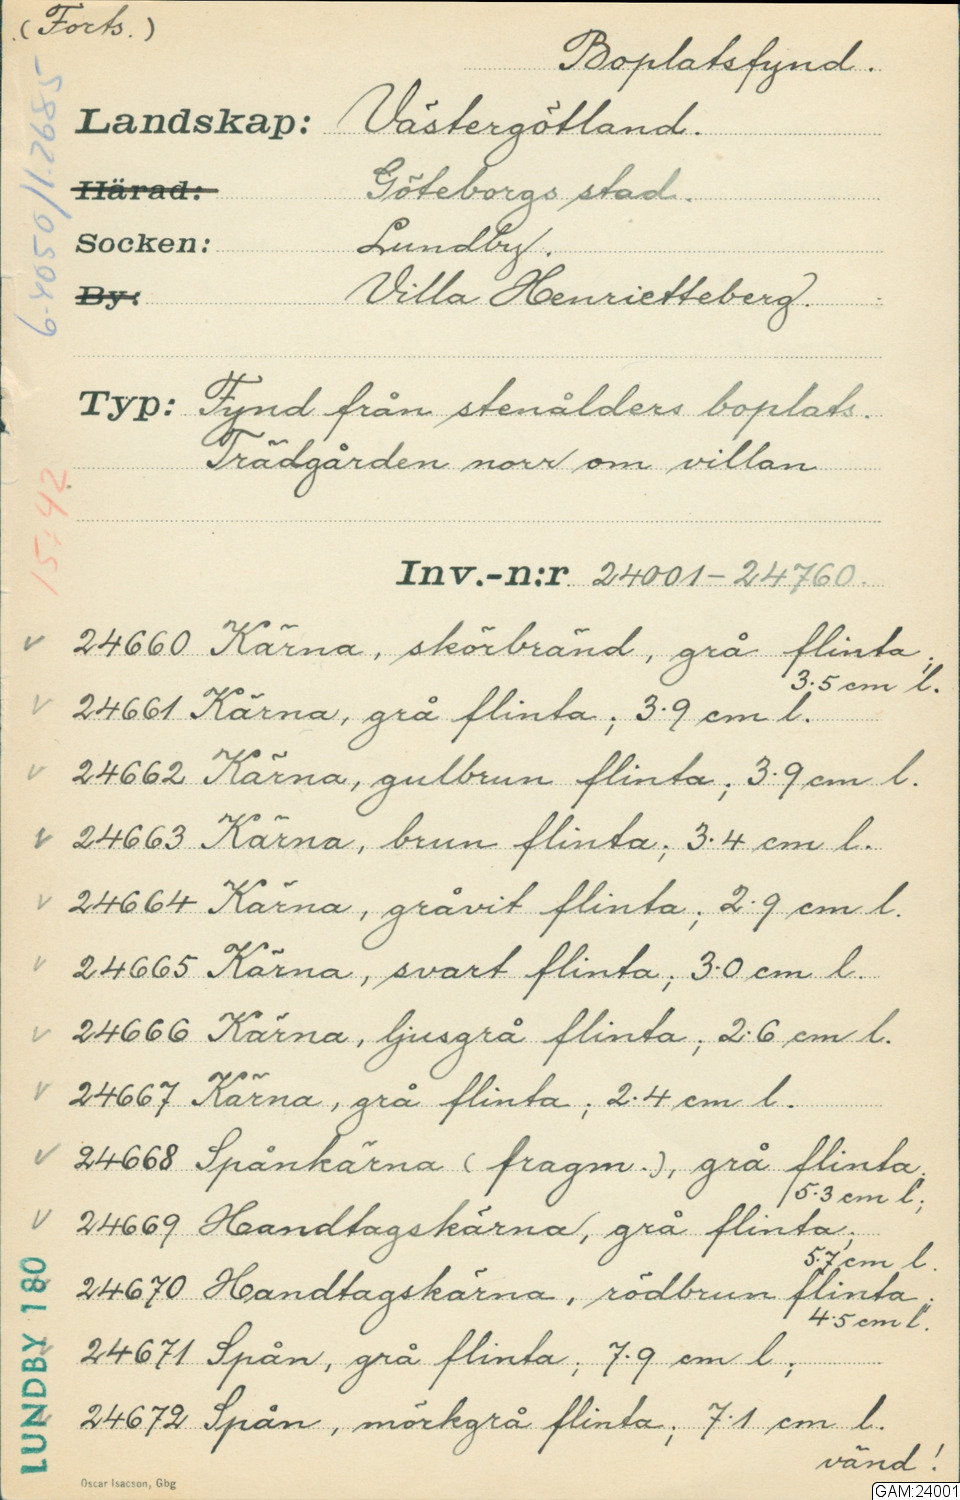 (Forts.)
Boplatsfynd.
Landskap: Västergötland.
Härad: Göteborgs stad.
Socken: Lundby.
By: Villa Henrietteberg.
Typ: Fynd från stenålders boplats.
Trädgården norr om villan
Inv.-n:r 24001-24760.
24660 Kärna, skörbränd, grå flinta;
3.5 cm l.
24661 Kärna, grå flinta; 3.9 cm l.
24662 Kärna, gulbrun flinta; 3.9 cm l.
24663 Kärna, brun flinta; 3.4 cm l.
24664 Kärna, gråvit flinta; 2.9 cm l.
24665 Kärna, svart flinta; 3.0 cm l.
24666 Kärna, ljusgrå flinta; 2.6 cm l.
24667 Kärna, grå flinta; 2.4 cm l.
24668 Spånkärna (fragm.), grå flinta;
5.3 cm l;
24669 Handtagskärna, grå flinta;
5.7 cm l.
24670 Handtagskärna, rödbrun flinta;
4.5 cm l.
24671 Spån, grå flinta; 7.9 cm l;
24672 Spån, mörkgrå flinta; 7.1 cm l.
vänd!
Oscar Isacson, Gbg
15:42
LUNDBY 180
GAM:24001